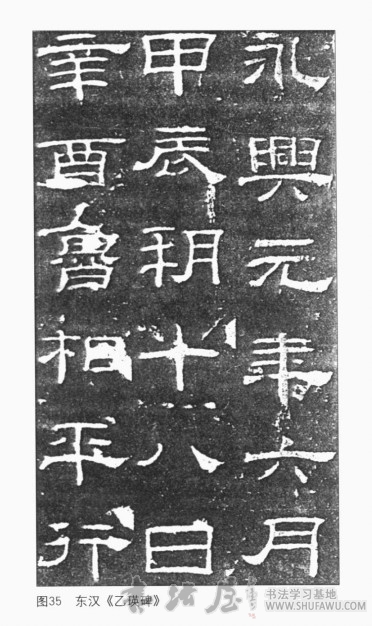 永興元年六月
甲辰朔十八日
辛酉魯相平行
图35 东汉《乙瑛碑》
书法屋
书法学习基地
WWW.SHUFAWU.COM